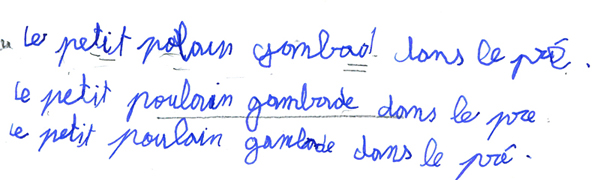 Le petit polain gambad dans le pré.
Le petit poulain gambade dans le pre
Le petit poulain gambade dans le pré.